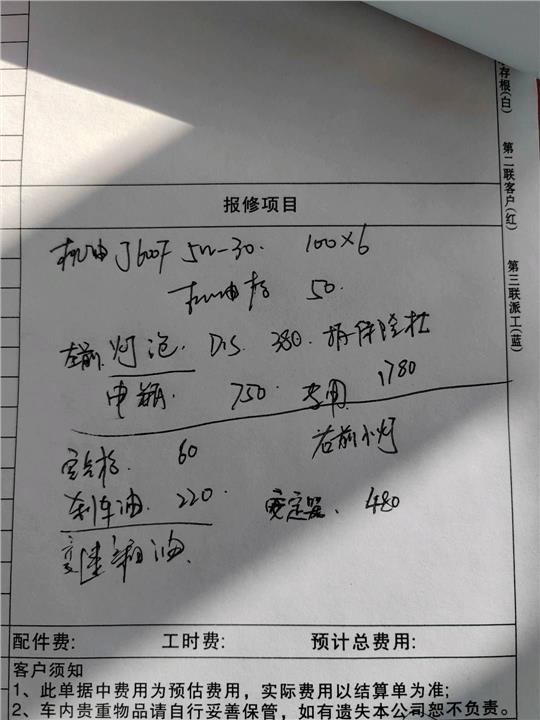 存根(白)
第二联客户(红)
第三联派工(蓝)
报修项目
机油 J600F 5W-30. 100×6
机油格 50.
左前灯泡. D1S. 380. 拆保险杠
电瓶. 750. 专用. 1780
空气格. 60 右前小灯
刹车油. 220. 安定器. 480
变速箱油.
配件费: 工时费: 预计总费用:
客户须知
1、此单据中费用为预估费用，实际费用以结算单为准;
2、车内贵重物品请自行妥善保管，如有遗失本公司恕不负责。